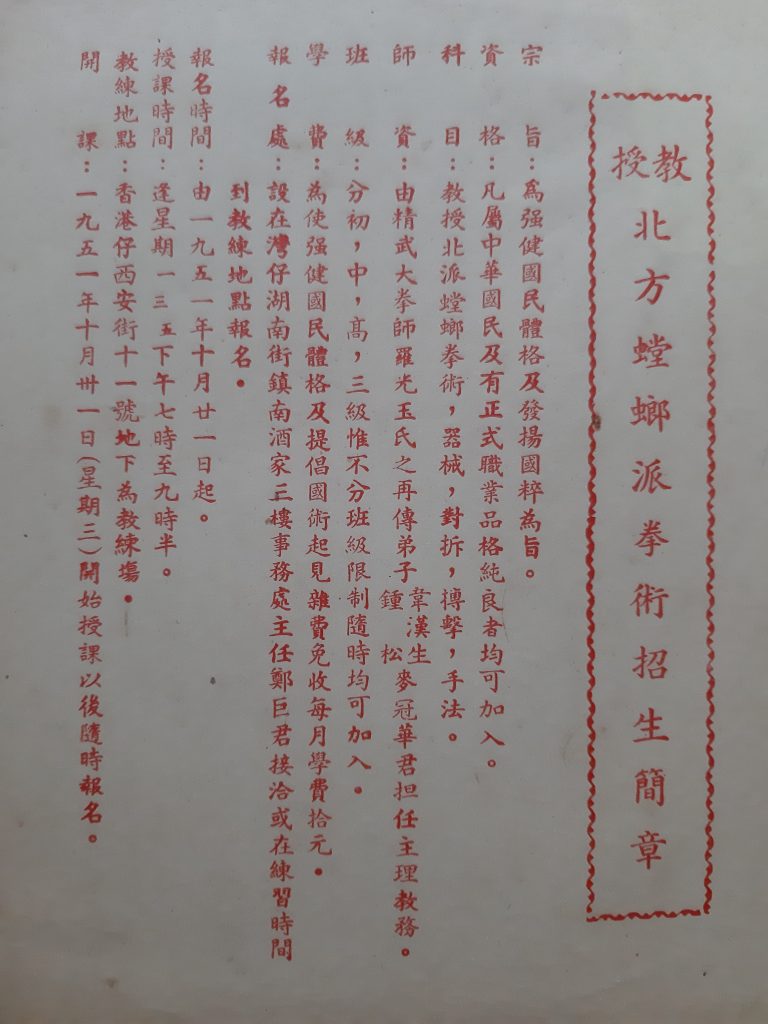 教授北方螳螂派拳術招生簡章
宗旨：為强健國民體格及發揚國粹為旨。
資格：凡屬中華國民及有正式職業品格純良者均可加入。
科目：教授北派螳螂拳術，器械，對拆，搏擊，手法。
師資：由精武大拳師羅光玉氏之再傳弟子韋漢生鍾松麥冠華君担任主理教務。
班級：分初，中，高，三級惟不分班級限制隨時均可加入．
學費：為使强健國民體格及提倡國術起見雜費免收每月學費拾元．
報名處：設在灣仔湖南街鎮南酒家三樓事務處主任鄭巨君接洽或在練習時間
到教練地點報名．
報名時間：由一九五一年十月廿一日起。
授課時間：逢星期一三五下午七時至九時半。
教練地點：香港仔西安街十一號地下為教練塲．
開課：一九五一年十月卅一日(星期三)開始授課以後隨時報名。